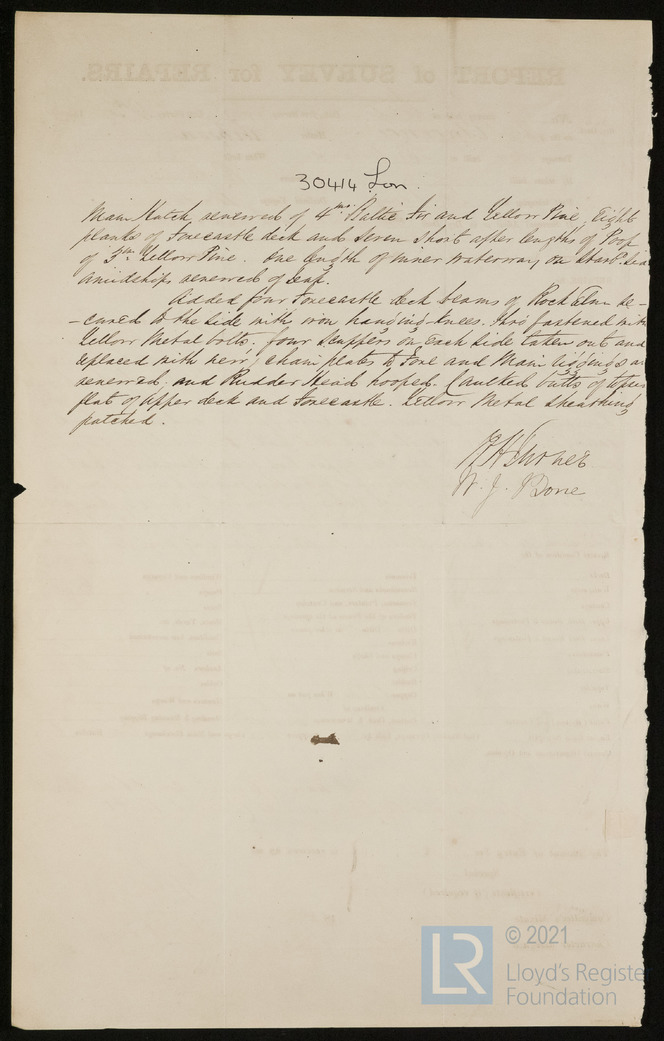 30414 Lon.
Main Hatch, renewed of 4 ins Baltic Fir and Yellow Pine, Eight
planks of Forecastle deck and seven short after lengths of Poop
of 3 in Yellow Pine. One length of inner waterway on Starbd. side
amidships renewed of
Added four Forecastle deck beams of Rock Elm se-
-cured to the side with iron hanging knees. thro' fastened with
Yellow Metal bolts. four Scuppers on each side taken out and
replaced with new, chain plates to Fore and Main riggings
renewed and Rudder Head hooped. Caulked butts of
flat of upper deck and Forecastle. Yellow Metal sheathing
patched.
W. J. Bone
REPORT of SURVEY for REPAIRS.
© 2021
LR
Lloyd's Register
Foundation